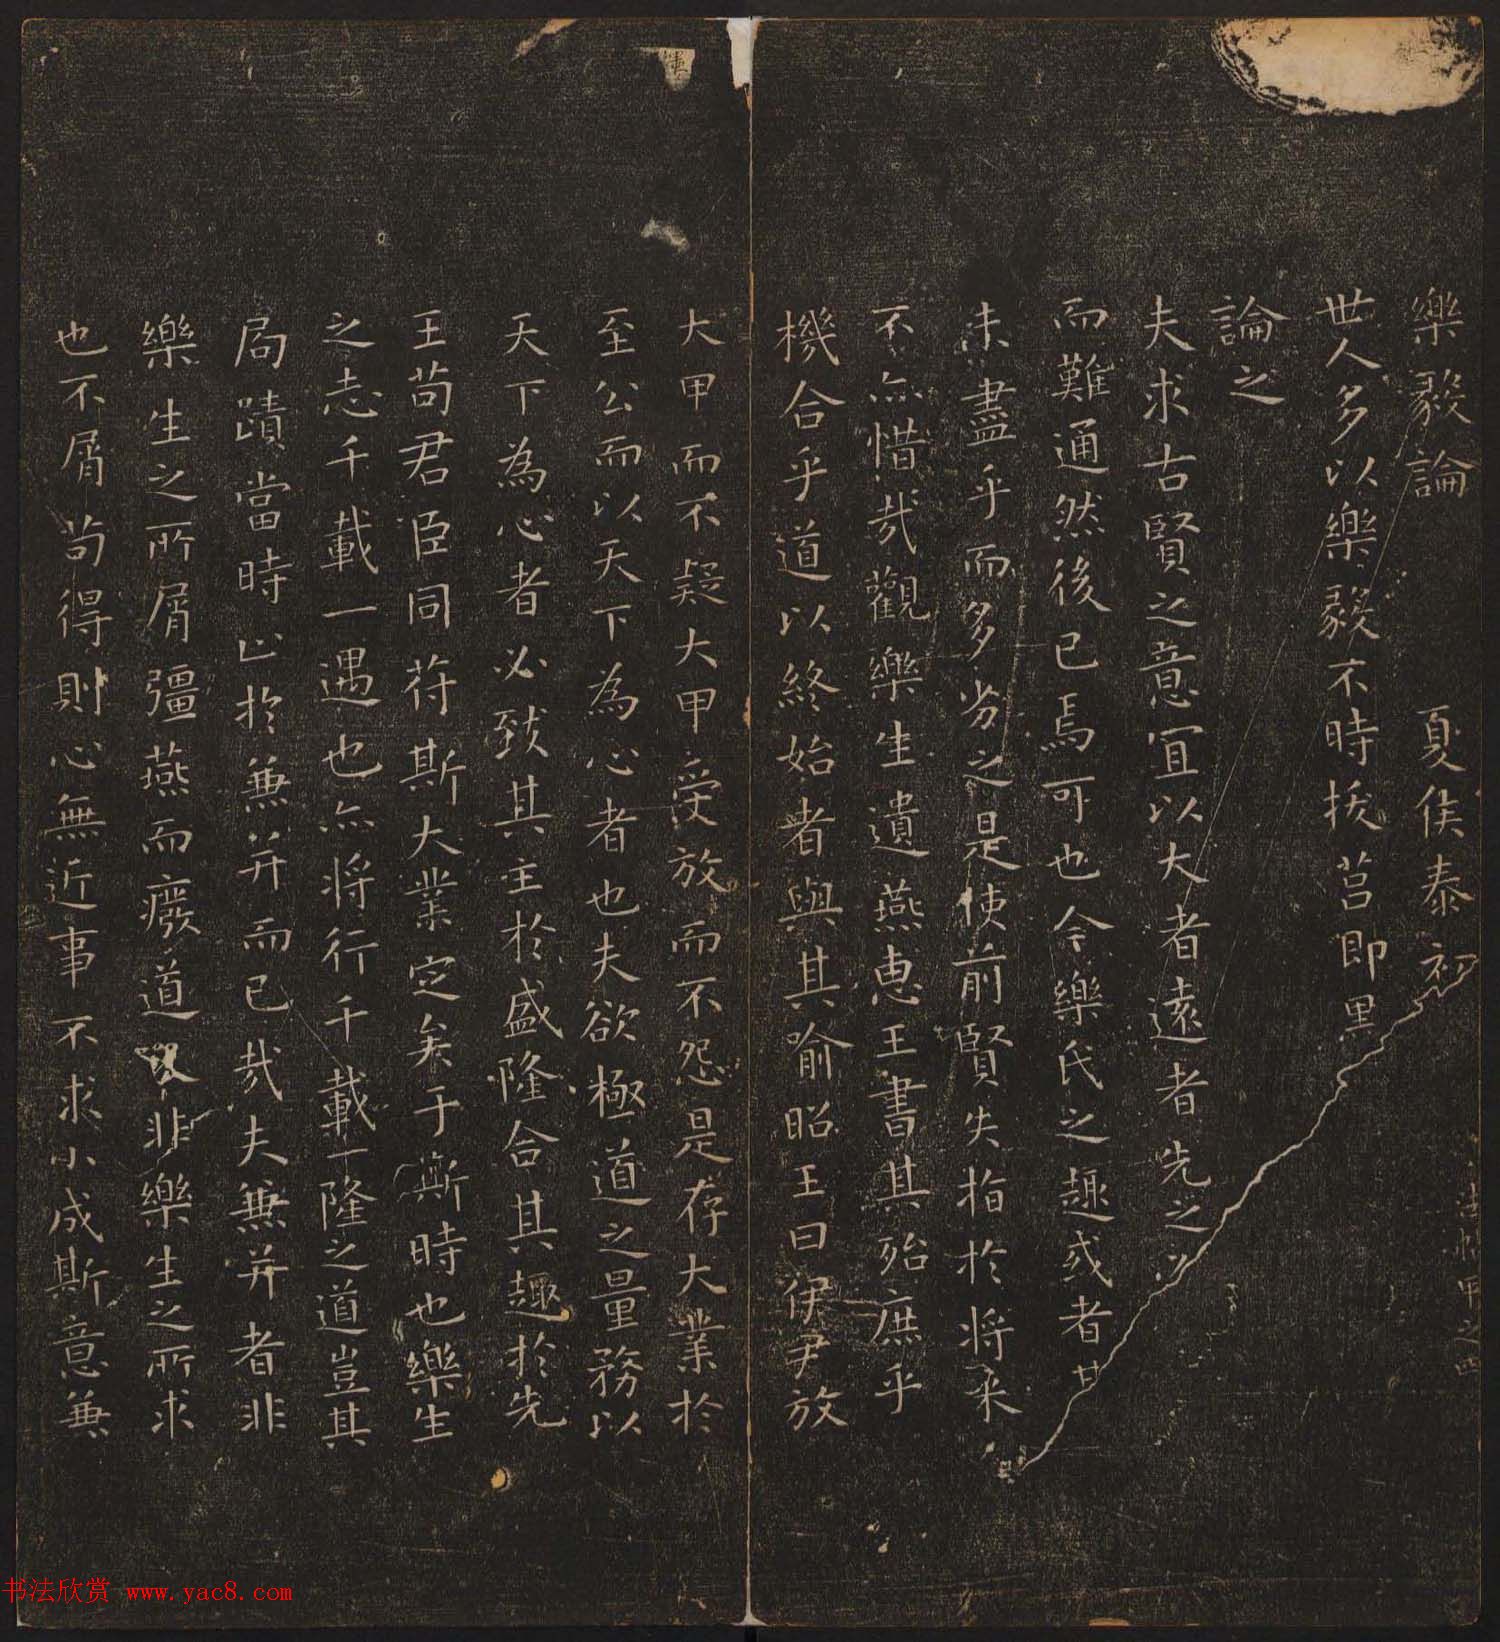 樂毅論　夏侯泰初
世人多以樂毅不時拔莒即墨
論之
夫求古賢之意宜以大者遠者先之必
而難通然後已焉可也今樂氏之趣或者其
未盡乎而多劣之是使前賢失指於將來
不亦惜哉觀樂生遺燕惠王書其殆庶乎
機合乎道以終始者與其喻昭王曰伊尹放
大甲而不疑大甲受放而不怨是存大業於
至公而以天下為心者也夫欲極道之量務以
天下為心者必致其主於盛隆合其趣於先
王苟君臣同符斯大業定矣于斯時也樂生
之志千載一遇也亦將行千載一隆之道豈其
局蹟當時止於兼并而已哉夫兼并者非
樂生之所屑彊燕而廢道又非樂生之所求
也不屑苟得則心無近事不求小成斯意兼
法帖甲之四
书法欣赏 www.yac8.com